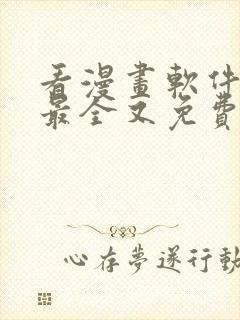 看漫畫軟件
最全又免費
心存夢遂行動